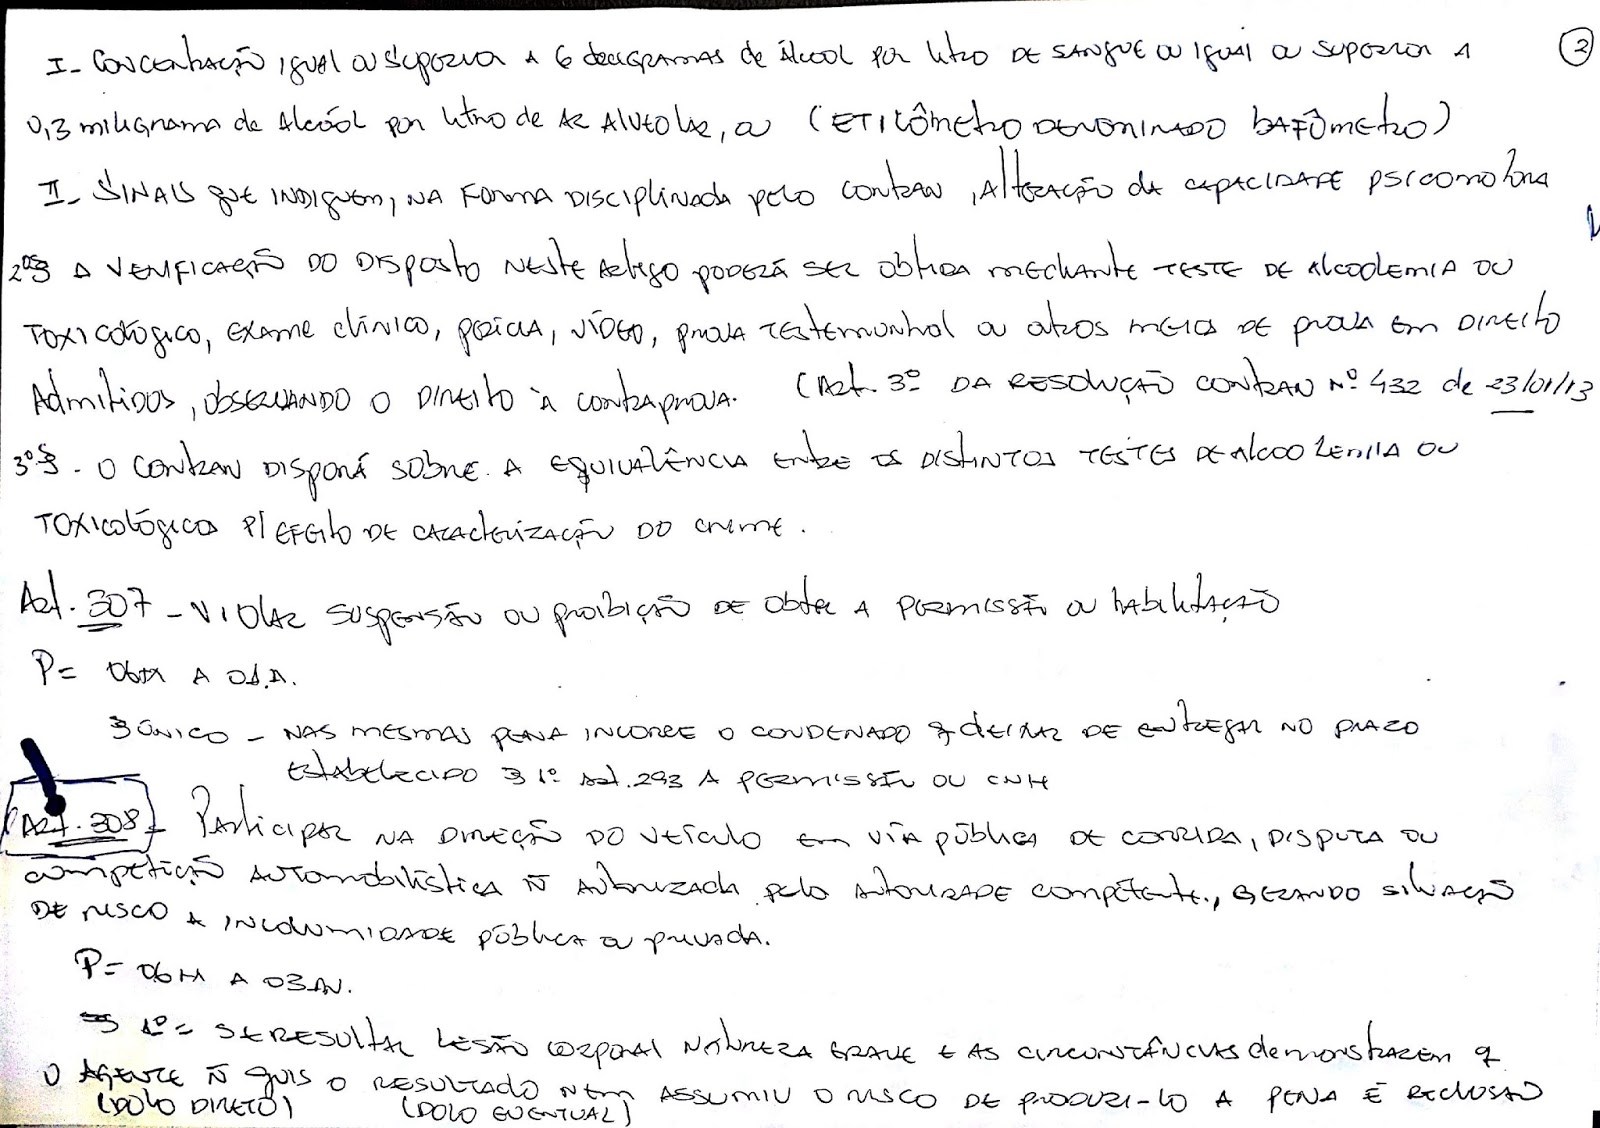 I - Concentração igual ou superior a 6 decigramas de álcool por litro de sangue ou igual ou superior a ②
0,3 miligrama de alcoól por litro de ar alveolar, ou (etilômetro denominado bafômetro)
II - Sinais que indiquem, na forma disciplinada pelo contran, alteração da capacidade psicomotora
2º§ A verificação do disposto neste artigo poderá ser obtida mediante teste de alcoolemia ou
toxicológico, exame clínico, perícia, vídeo, prova testemunhal ou otros meios de prova em direito
admitidos, observando o direito à contraprova. (Art. 3º da Resolução Contran Nº 432 de 23/01/13
3º§ - O contran disporá sobre a equivalência entre os distintos testes de alcoolemia ou
toxicológicos p/ efeito de caracterização do crime.
Art. 307 - Violar suspensão ou proibição de obter a permissão ou habilitação
P= 06M a 01.A.
§ único - nas mesmas pena incorre o condenado q deixar de entregar no prazo
estabelecido § 1º Art. 293 a permissão ou CNH
Art. 308 - Participar na direção do veículo em via pública de corrida, disputa ou
competição automobilística ñ autorizada pelo autoridade competente., gerando situação
de risco a incolumidade pública ou privada.
P= 06M a 03 AN.
§ 1º = Se resultar lesão corporal natureza grave e as circunstâncias demonstrarem q
o agente ñ quis o resultado nem assumiu o risco de produzi-lo a pena é reclusão
(dolo direto) (dolo eventual)